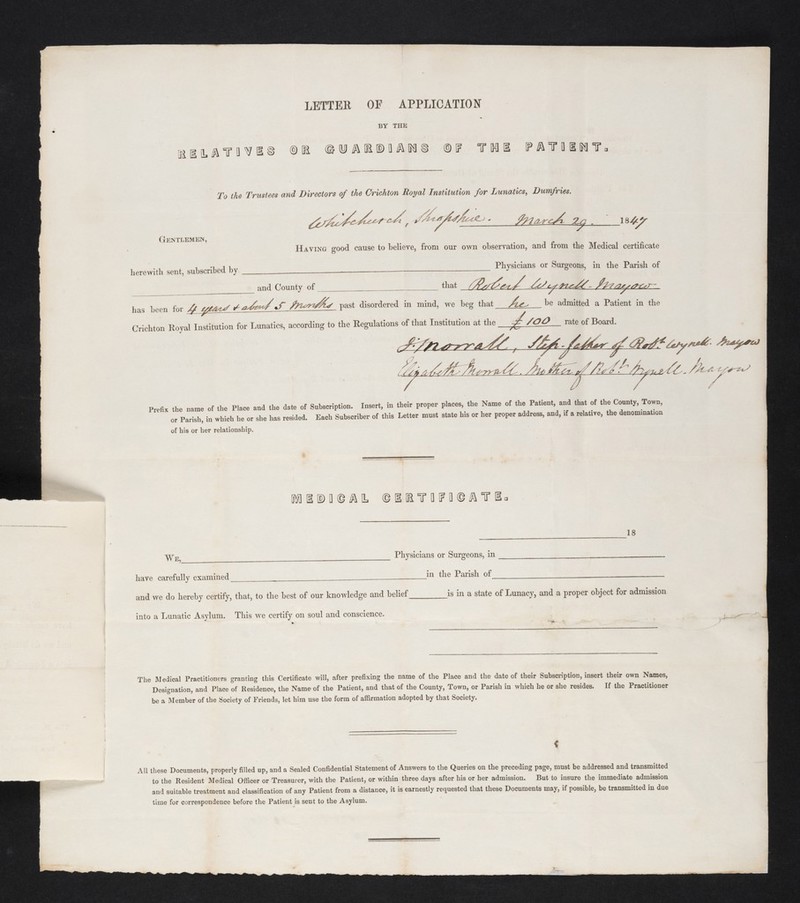 LETTER OF APPLICATION
BY THE
RELATIVES OR GUARDIANS OF THE PATIENT.
To the Trustees and Directors of the Crichton Royal Institution for Lunatics, Dumfries.
Whitchurch, Shropshire. March 29. 1847
GENTLEMEN,
HAVING good cause to believe, from our own observation, and from the Medical certificate
herewith sent, subscribed by Physicians or Surgeons, in the Parish of
and County of that Robert Wynell-Mayow-
has been for 4 years & about 5 Months past disordered in mind, we beg that he be admitted a Patient in the
Crichton Royal Institution for Lunatics, according to the Regulations of that Institution at the £100 rate of Board.
Morrall, Step-father of Robt. Wynell-Mayow
Elizabeth Morrall. Mother of Robt. Wynell. Mayow
Prefix the name of the Place and the date of Subscription. Insert, in their proper places, the Name of the Patient, and that of the County, Town,
or Parish, in which he or she has resided. Each Subscriber of this Letter must state his or her proper address, and, if a relative, the denomination
of his or her relationship.
MEDICAL CERTIFICATE.
18
WE, Physicians or Surgeons, in
have carefully examined in the Parish of
and we do hereby certify, that, to the best of our knowledge and belief is in a state of Lunacy, and a proper object for admission
into a Lunatic Asylum. This we certify on soul and conscience.
The Medical Practitioners granting this Certificate will, after prefixing the name of the Place and the date of their Subscription, insert their own Names,
Designation, and Place of Residence, the Name of the Patient, and that of the County, Town, or Parish in which he or she resides. If the Practitioner
be a Member of the Society of Friends, let him use the form of affirmation adopted by that Society.
All these Documents, properly filled up, and a Sealed Confidential Statement of Answers to the Queries on the preceding page, must be addressed and transmitted
to the Resident Medical Officer or Treasurer, with the Patient, or within three days after his or her admission. But to insure the immediate admission
and suitable treatment and classification of any Patient from a distance, it is earnestly requested that these Documents may, if possible, be transmitted in due
time for correspondence before the Patient is sent to the Asylum.